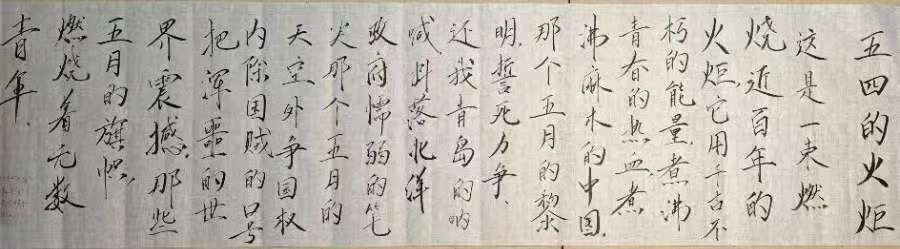 五四的火炬
这是一束燃
烧近百年的
火炬,它用千古不
朽的能量,煮沸
青春的热血,煮
沸麻木的中国,
那个五月的黎
明,誓死力争、
还我青岛的呐
喊击落北洋
政府懦弱的笔
尖那个五月的
天空外争国权
内除国贼的口号
把浑噩的世
界震撼,那些
五月的旗帜,
燃烧着无数
青年.